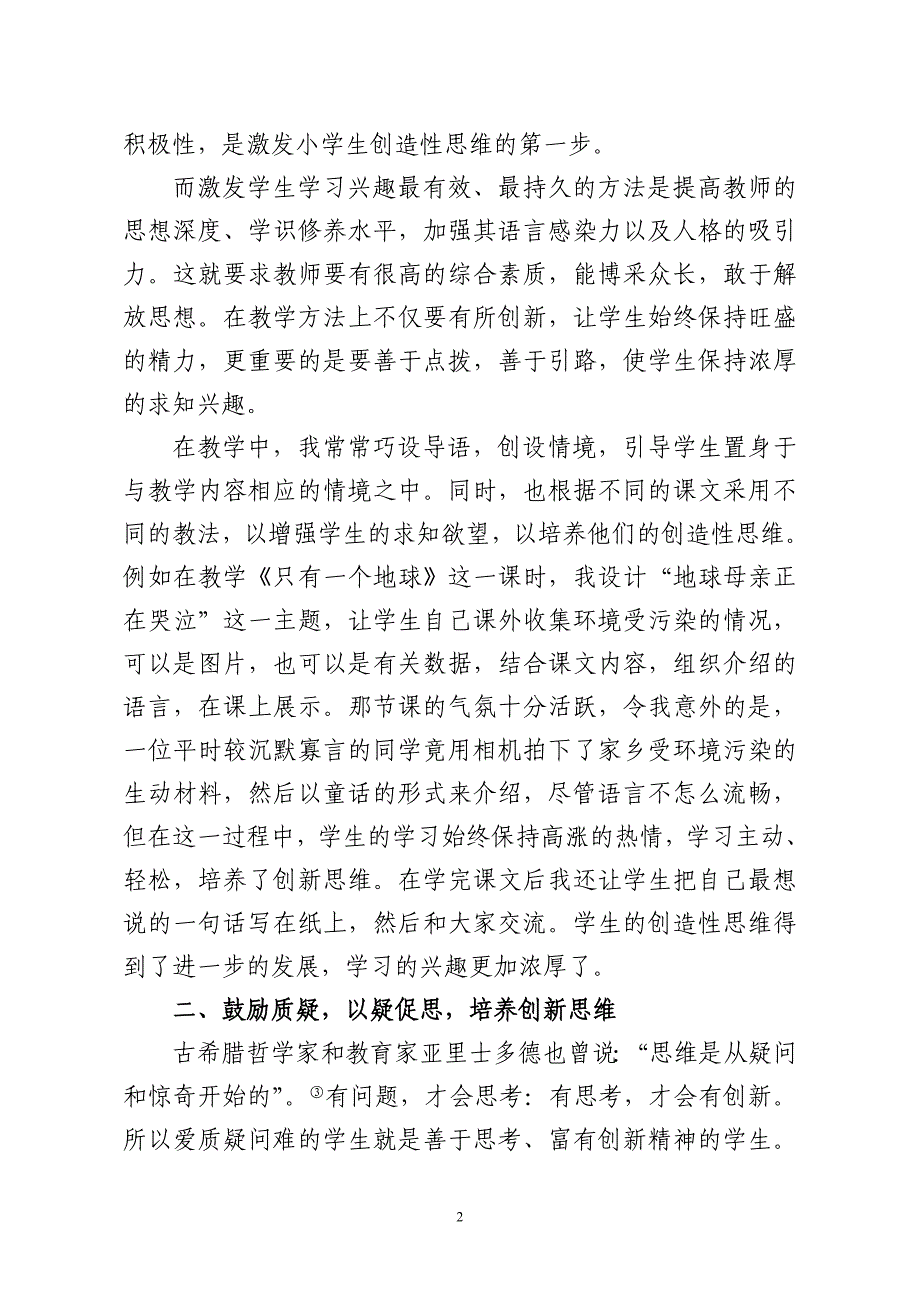 积极性，是激发小学生创造性思维的第一步。
而激发学生学习兴趣最有效、最持久的方法是提高教师的
思想深度、学识修养水平，加强其语言感染力以及人格的吸引
力。这就要求教师要有很高的综合素质，能博采众长，敢于解
放思想。在教学方法上不仅要有所创新，让学生始终保持旺盛
的精力，更重要的是要善于点拨，善于引路，使学生保持浓厚
的求知兴趣。
在教学中，我常常巧设导语，创设情境，引导学生置身于
与教学内容相应的情境之中。同时，也根据不同的课文采用不
同的教法，以增强学生的求知欲望，以培养他们的创造性思维。
例如在教学《只有一个地球》这一课时，我设计“地球母亲正
在哭泣”这一主题，让学生自己课外收集环境受污染的情况，
可以是图片，也可以是有关数据，结合课文内容，组织介绍的
语言，在课上展示。那节课的气氛十分活跃，令我意外的是，
一位平时较沉默寡言的同学竟用相机拍下了家乡受环境污染的
生动材料，然后以童话的形式来介绍，尽管语言不怎么流畅，
但在这一过程中，学生的学习始终保持高涨的热情，学习主动、
轻松，培养了创新思维。在学完课文后我还让学生把自己最想
说的一句话写在纸上，然后和大家交流。学生的创造性思维得
到了进一步的发展，学习的兴趣更加浓厚了。
二、鼓励质疑，以疑促思，培养创新思维
古希腊哲学家和教育家亚里士多德也曾说：“思维是从疑问
和惊奇开始的”。③有问题，才会思考：有思考，才会有创新。
所以爱质疑问难的学生就是善于思考、富有创新精神的学生。
2